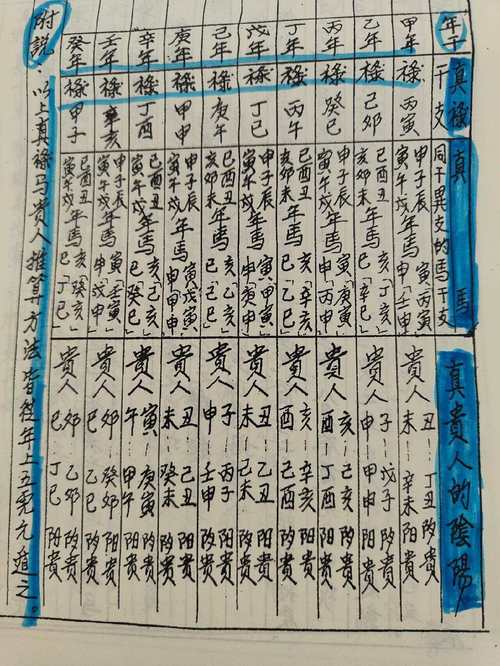 年干
真祿 干支
真馬 同干異支的馬干支
真貴人的陰陽
甲年 祿 丙寅 甲子辰 寅午戌 年馬 寅「丙寅」 申「壬申」 貴人 丑…丁丑 陰貴 未…辛未 陽貴
乙年 祿 己卯 巳酉丑 亥卯未 年馬 亥「丁亥」 巳「辛巳」 貴人 子…戊子 陰貴 申…甲申 陽貴
丙年 祿 癸巳 甲子辰 寅午戌 年馬 寅「庚寅」 申「丙申」 貴人 亥…己亥 陰貴 酉…丁酉 陽貴
丁年 祿 丙午 巳酉丑 亥卯未 年馬 亥「辛亥」 巳「乙巳」 貴人 亥…辛亥 陽貴 酉…己酉 陰貴
戊年 祿 丁巳 甲子辰 寅午戌 年馬 寅「甲寅」 申「庚申」 貴人 丑…乙丑 陰貴 未…己未 陽貴
己年 祿 庚午 巳酉丑 亥卯未 年馬 亥「乙亥」 巳「己巳」 貴人 子…丙子 陽貴 申…壬申 陰貴
庚年 祿 甲申 甲子辰 寅午戌 年馬 寅「戊寅」 申「甲申」 貴人 丑…己丑 陰貴 未…癸未 陽貴
辛年 祿 丁酉 巳酉丑 寅午戌 年馬 亥「己亥」 巳「癸巳」 貴人 寅…庚寅 陰貴 午…甲午 陽貴
壬年 祿 辛亥 甲子辰 寅午戌 年馬 寅「壬寅」 申「戊申」 貴人 卯…癸卯 陽貴 巳…乙巳 陰貴
癸年 祿 甲子 巳酉丑 寅午戌 年馬 亥「癸亥」 巳「丁巳」 貴人 卯…乙卯 陰貴 巳…丁巳 陽貴
附說:以上真祿马貴人推算方法皆從年上五虎元遁之。